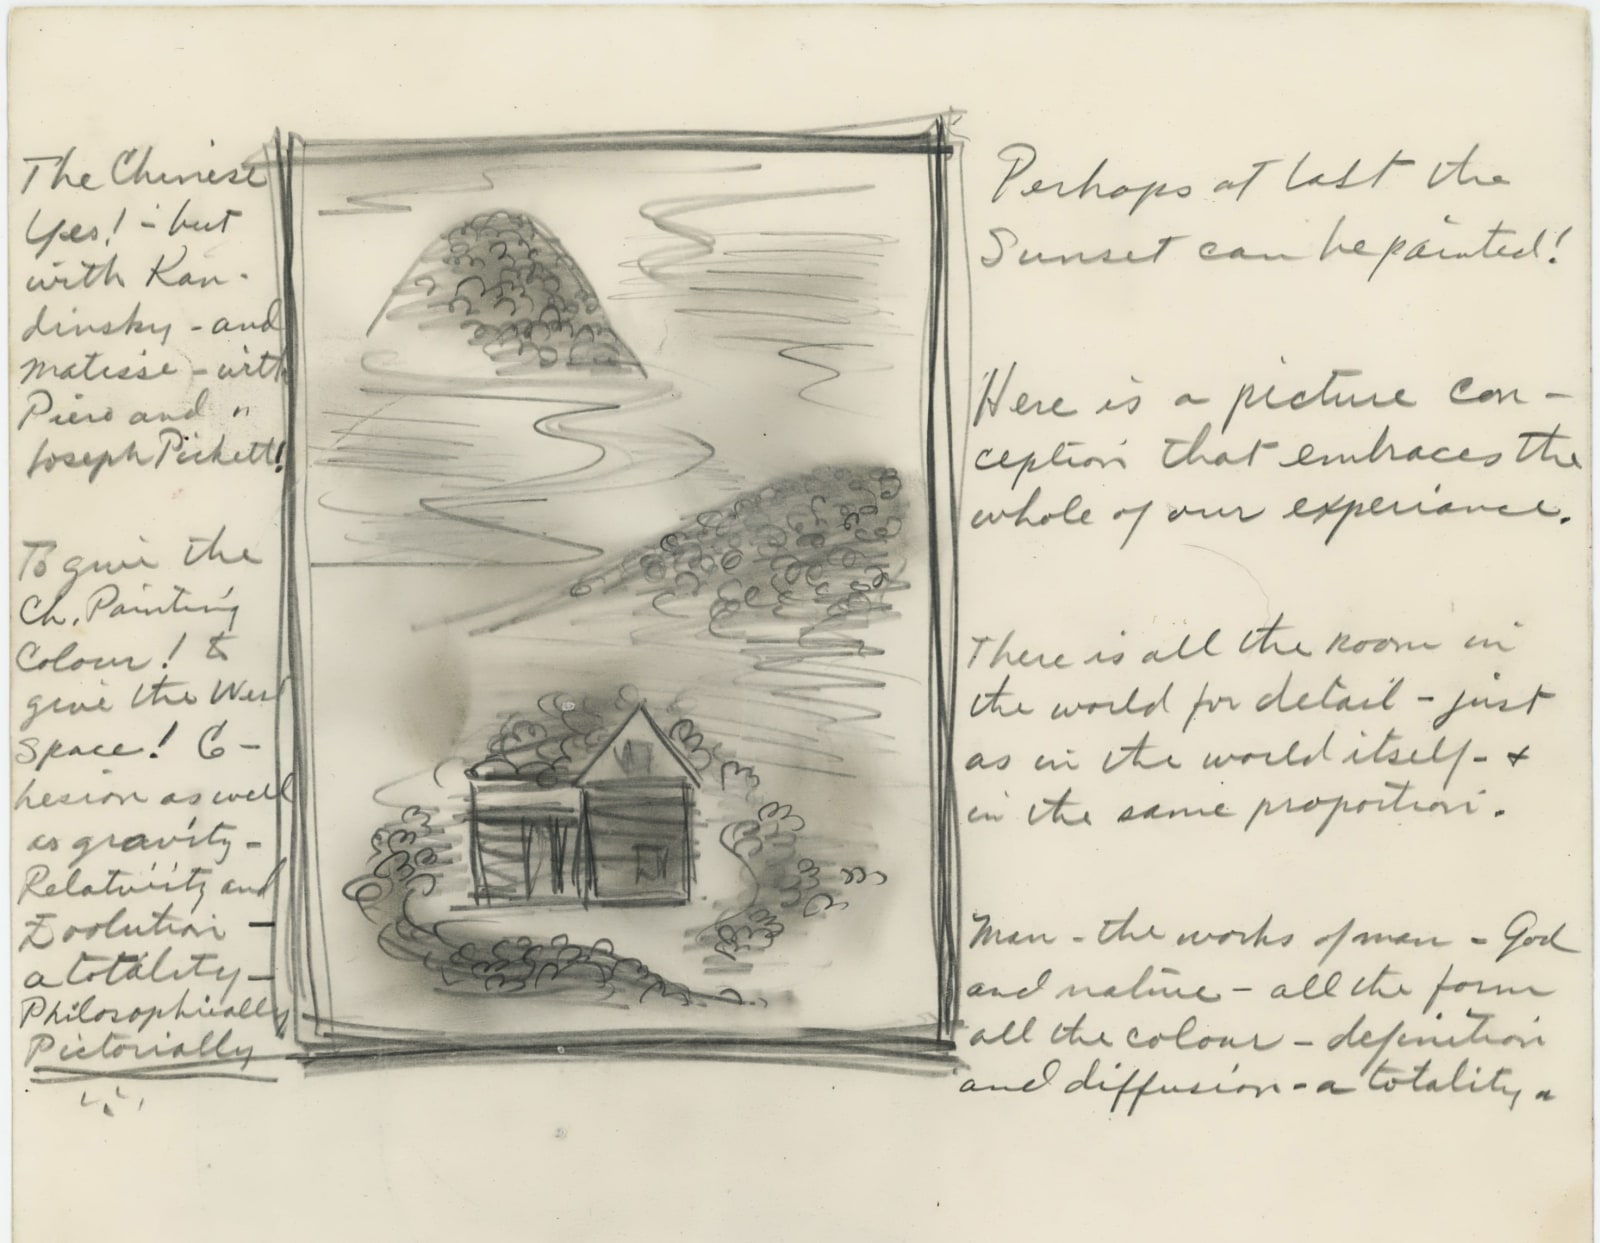 The Chinese
Yes! - but
with Kan-
dinsky - and
Matisse - with
Piero and "
Joseph Pickett!
To give the
Ch. Painting
Colour! &
give the West
Space! Co-
hesion as well
as gravity -
Relativity and
Evolution -
a totality -
Philosophically
Pictorially
Perhaps at last the
Sunset can be painted!
Here is a picture con-
ception that embraces the
whole of our experience.
There is all the room in
the world for detail - just
as in the world itself - +
in the same proportion.
Man - the works of man - God
and nature - all the form
all the colour - definition
and diffusion - a totality -